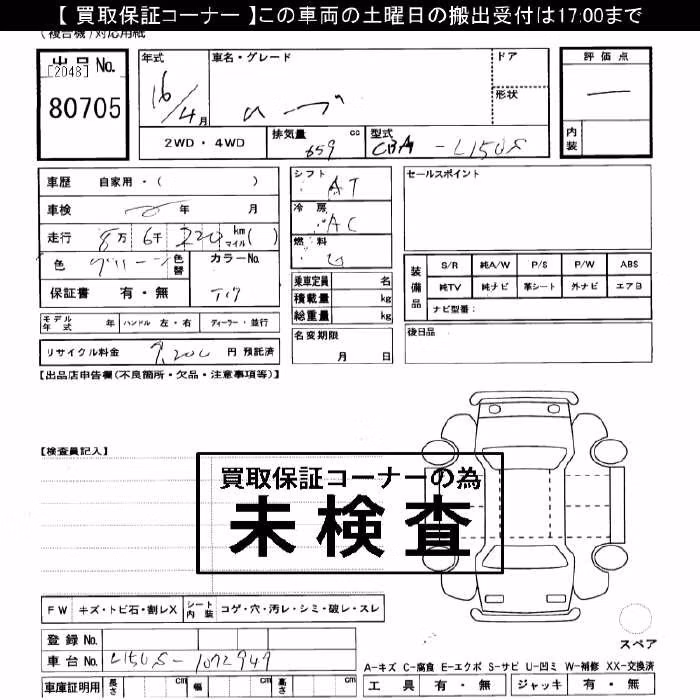 【 買取保証コーナー 】この車両の土曜日の搬出受付は17:00まで
(複合機)対応用紙
出品 No.
[2048]
80705
年式
16/4月
車名・グレード
ムーブ
ドア
形状
評価点
—
内装
2WD・4WD
排気量 659 cc
型式 CBA-L150S
車歴 自家用・( )
車検 年 月
走行 8万 6千 220 km マイル ( )
色 グリーン 色替 カラーNo.
保証書 有・無
シフト AT
冷房 AC
燃料 G
乗車定員 名
積載量 kg
総重量 kg
セールスポイント
装備品
S/R 純A/W P/S P/W ABS
純TV 純ナビ 革シート 外ナビ エアB
ナビ型番:
モデル年式 年 ハンドル 左・右 ディーラー・並行
リサイクル料金 9,200 円 預託済
名変期限 月 日
後日品
【出品店申告欄(不良箇所・欠品・注意事項等)】
【検査員記入】
買取保証コーナーの為
未検査
FW キズ・トビ石・割レX シート内装 コゲ・穴・汚レ・シミ・破レ・スレ
登録 No.
車台 No. L150S-1072949
車庫証明用 長さ cm 幅 cm 高さ cm
スペア
A-キズ C-腐食 E-エクボ S-サビ U-凹ミ W-補修 XX-交換済
工具 有・無 ジャッキ 有・無